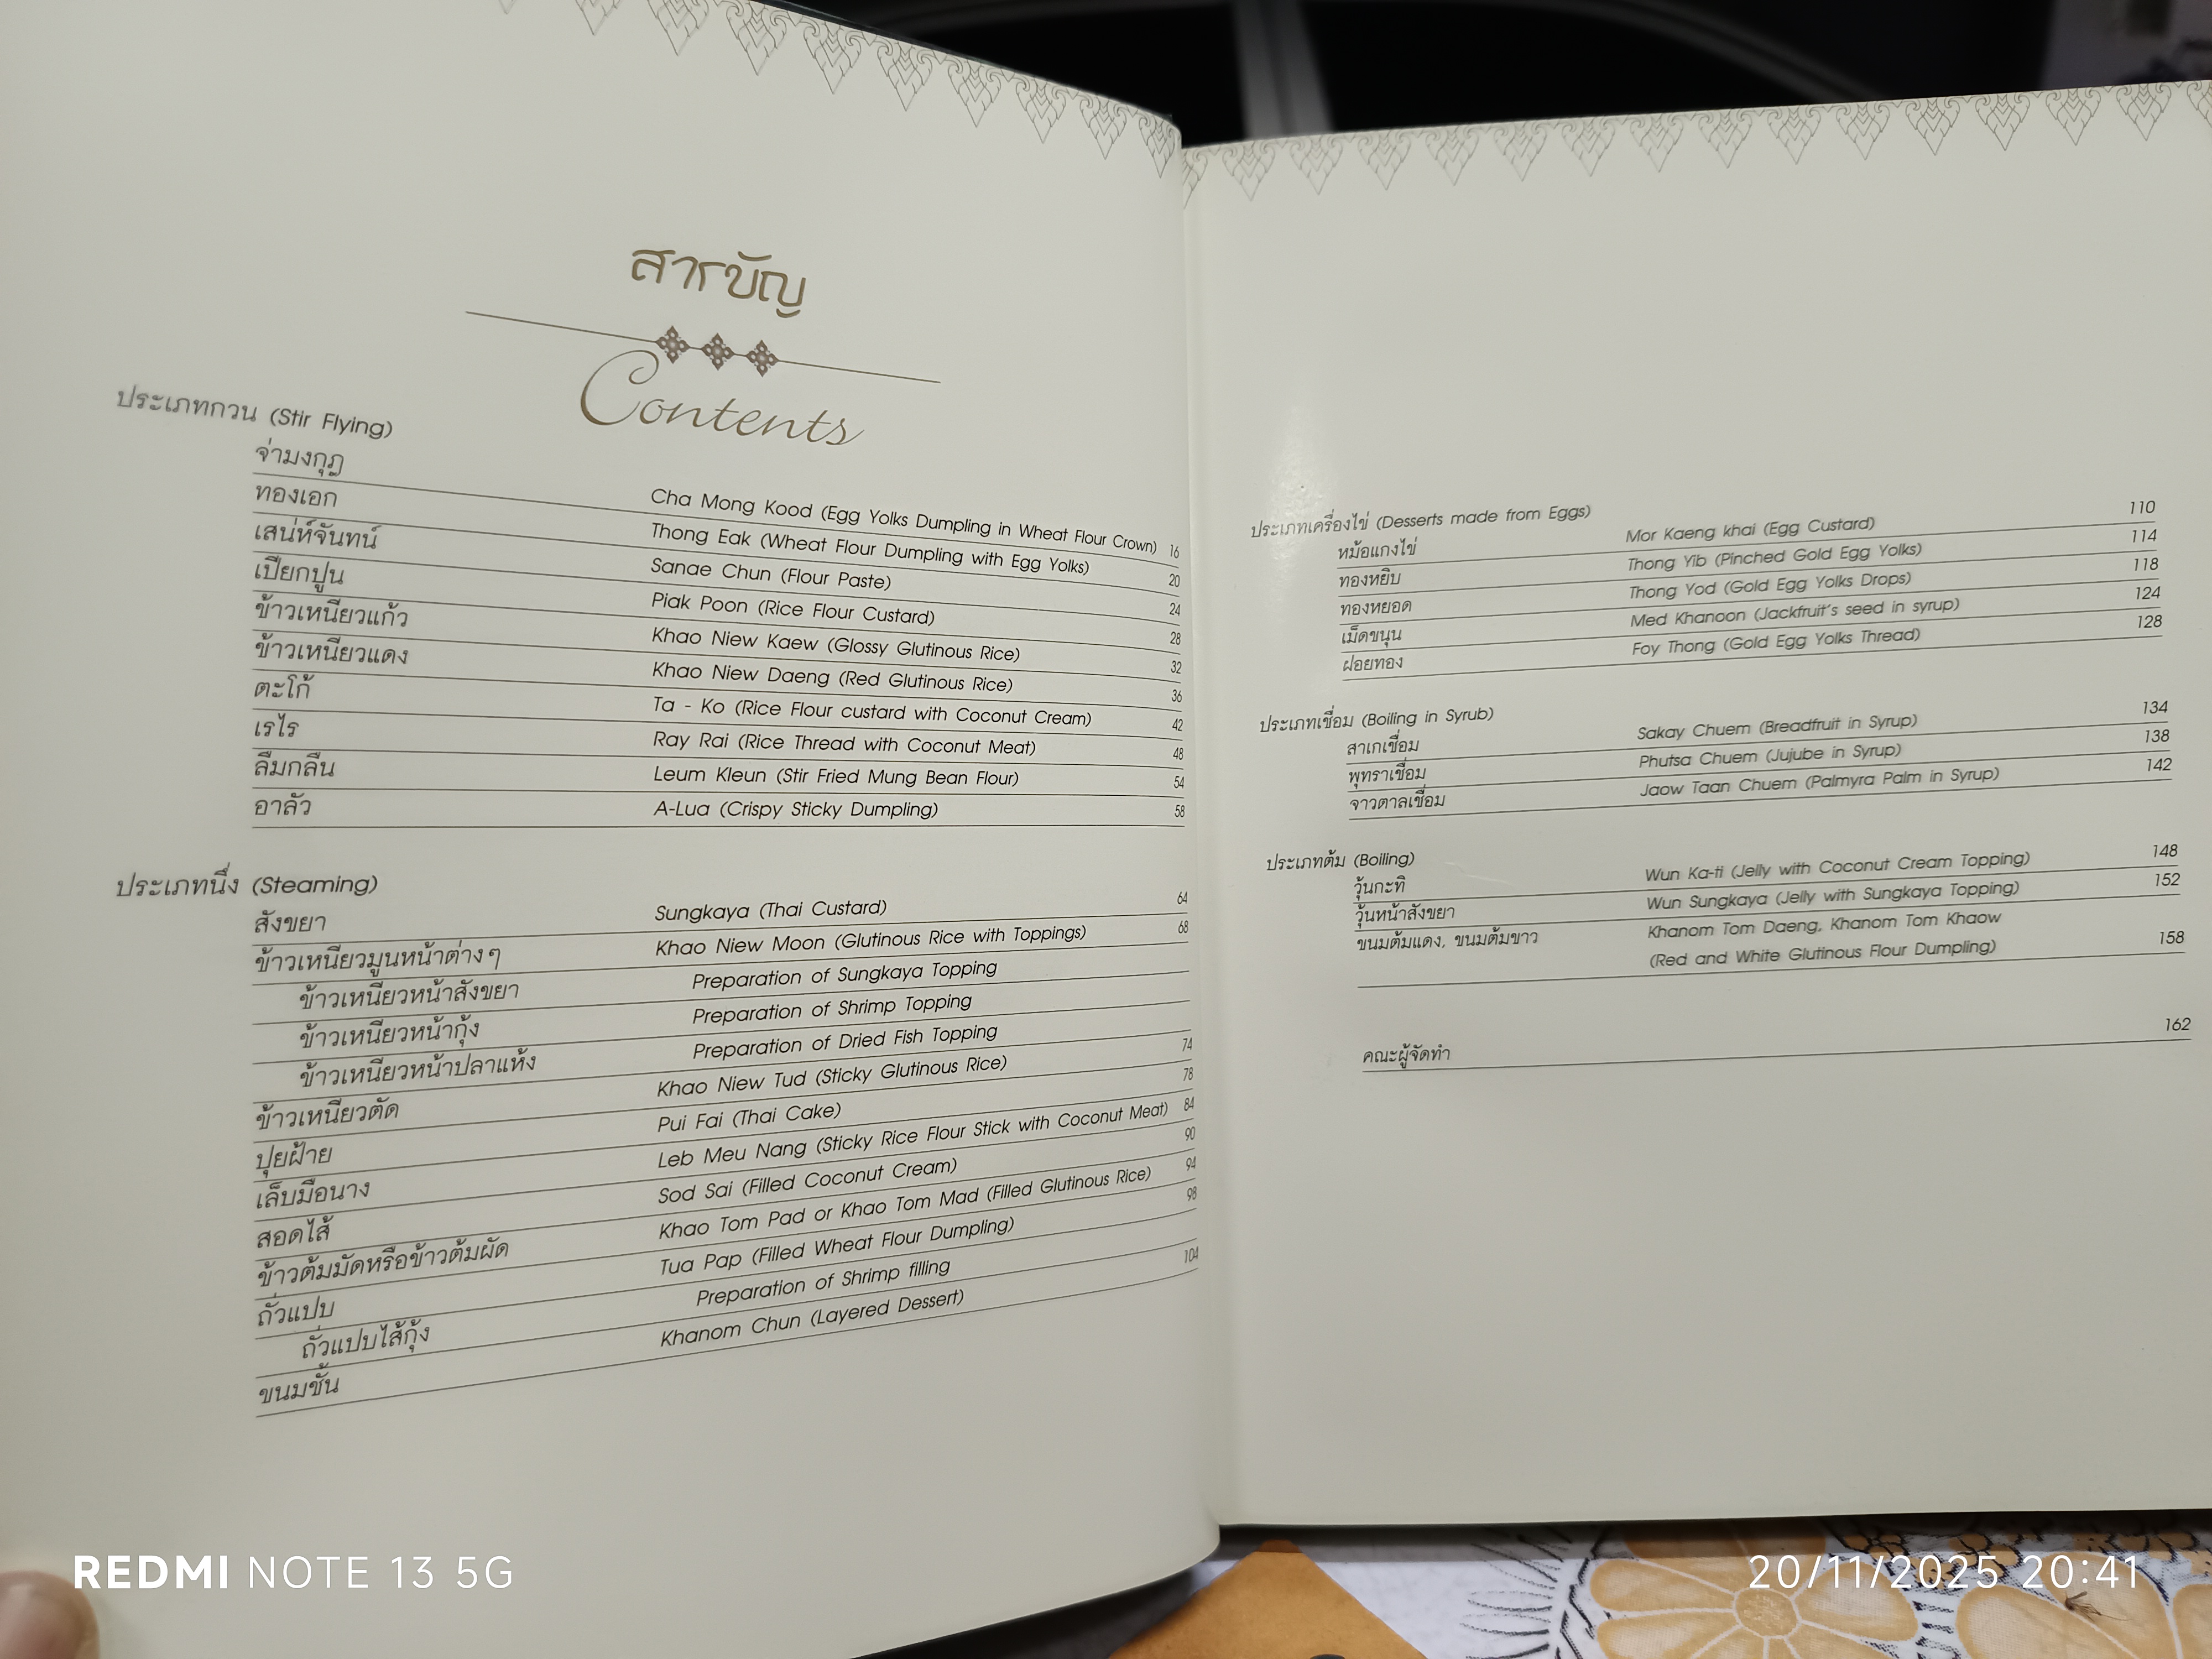 สารบัญ
Contents
ประเภทกวน (Stir Flying)
จ่ามงกุฎ Cha Mong Kood (Egg Yolks Dumpling in Wheat Flour Crown) 16
ทองเอก Thong Eak (Wheat Flour Dumpling with Egg Yolks) 20
เสน่ห์จันทน์ Sanae Chun (Flour Paste) 24
เปียกปูน Piak Poon (Rice Flour Custard) 28
ข้าวเหนียวแก้ว Khao Niew Kaew (Glossy Glutinous Rice) 32
ข้าวเหนียวแดง Khao Niew Daeng (Red Glutinous Rice) 36
ตะโก้ Ta - Ko (Rice Flour custard with Coconut Cream) 42
เรไร Ray Rai (Rice Thread with Coconut Meat) 48
ลืมกลืน Leum Kleun (Stir Fried Mung Bean Flour) 54
อาลัว A-Lua (Crispy Sticky Dumpling) 58
ประเภทนึ่ง (Steaming)
สังขยา Sungkaya (Thai Custard) 64
ข้าวเหนียวมูนหน้าต่างๆ Khao Niew Moon (Glutinous Rice with Toppings) 68
ข้าวเหนียวหน้าสังขยา Preparation of Sungkaya Topping
ข้าวเหนียวหน้ากุ้ง Preparation of Shrimp Topping
ข้าวเหนียวหน้าปลาแห้ง Preparation of Dried Fish Topping
ข้าวเหนียวตัด Khao Niew Tud (Sticky Glutinous Rice) 74
ปุยฝ้าย Pui Fai (Thai Cake) 78
เล็บมือนาง Leb Meu Nang (Sticky Rice Flour Stick with Coconut Meat) 84
สอดไส้ Sod Sai (Filled Coconut Cream) 90
ข้าวต้มมัดหรือข้าวต้มผัด Khao Tom Pad or Khao Tom Mad (Filled Glutinous Rice) 94
ถั่วแปบ Tua Pap (Filled Wheat Flour Dumpling) 98
ถั่วแปบไส้กุ้ง Preparation of Shrimp filling
ขนมชั้น Khanom Chun (Layered Dessert) 104
ประเภทเครื่องไข่ (Desserts made from Eggs)
หม้อแกงไข่ Mor Kaeng khai (Egg Custard) 110
ทองหยิบ Thong Yib (Pinched Gold Egg Yolks) 114
ทองหยอด Thong Yod (Gold Egg Yolks Drops) 118
เม็ดขนุน Med Khanoon (Jackfruit's seed in syrup) 124
ฝอยทอง Foy Thong (Gold Egg Yolks Thread) 128
ประเภทเชื่อม (Boiling in Syrub)
สาเกเชื่อม Sakay Chuem (Breadfruit in Syrup) 134
พุทราเชื่อม Phutsa Chuem (Jujube in Syrup) 138
จาวตาลเชื่อม Jaow Taan Chuem (Palmyra Palm in Syrup) 142
ประเภทต้ม (Boiling)
วุ้นกะทิ Wun Ka-ti (Jelly with Coconut Cream Topping) 148
วุ้นหน้าสังขยา Wun Sungkaya (Jelly with Sungkaya Topping) 152
ขนมต้มแดง, ขนมต้มขาว Khanom Tom Daeng, Khanom Tom Khaow
(Red and White Glutinous Flour Dumpling) 158
คณะผู้จัดทำ 162
REDMI NOTE 13 5G
20/11/2025 20:41